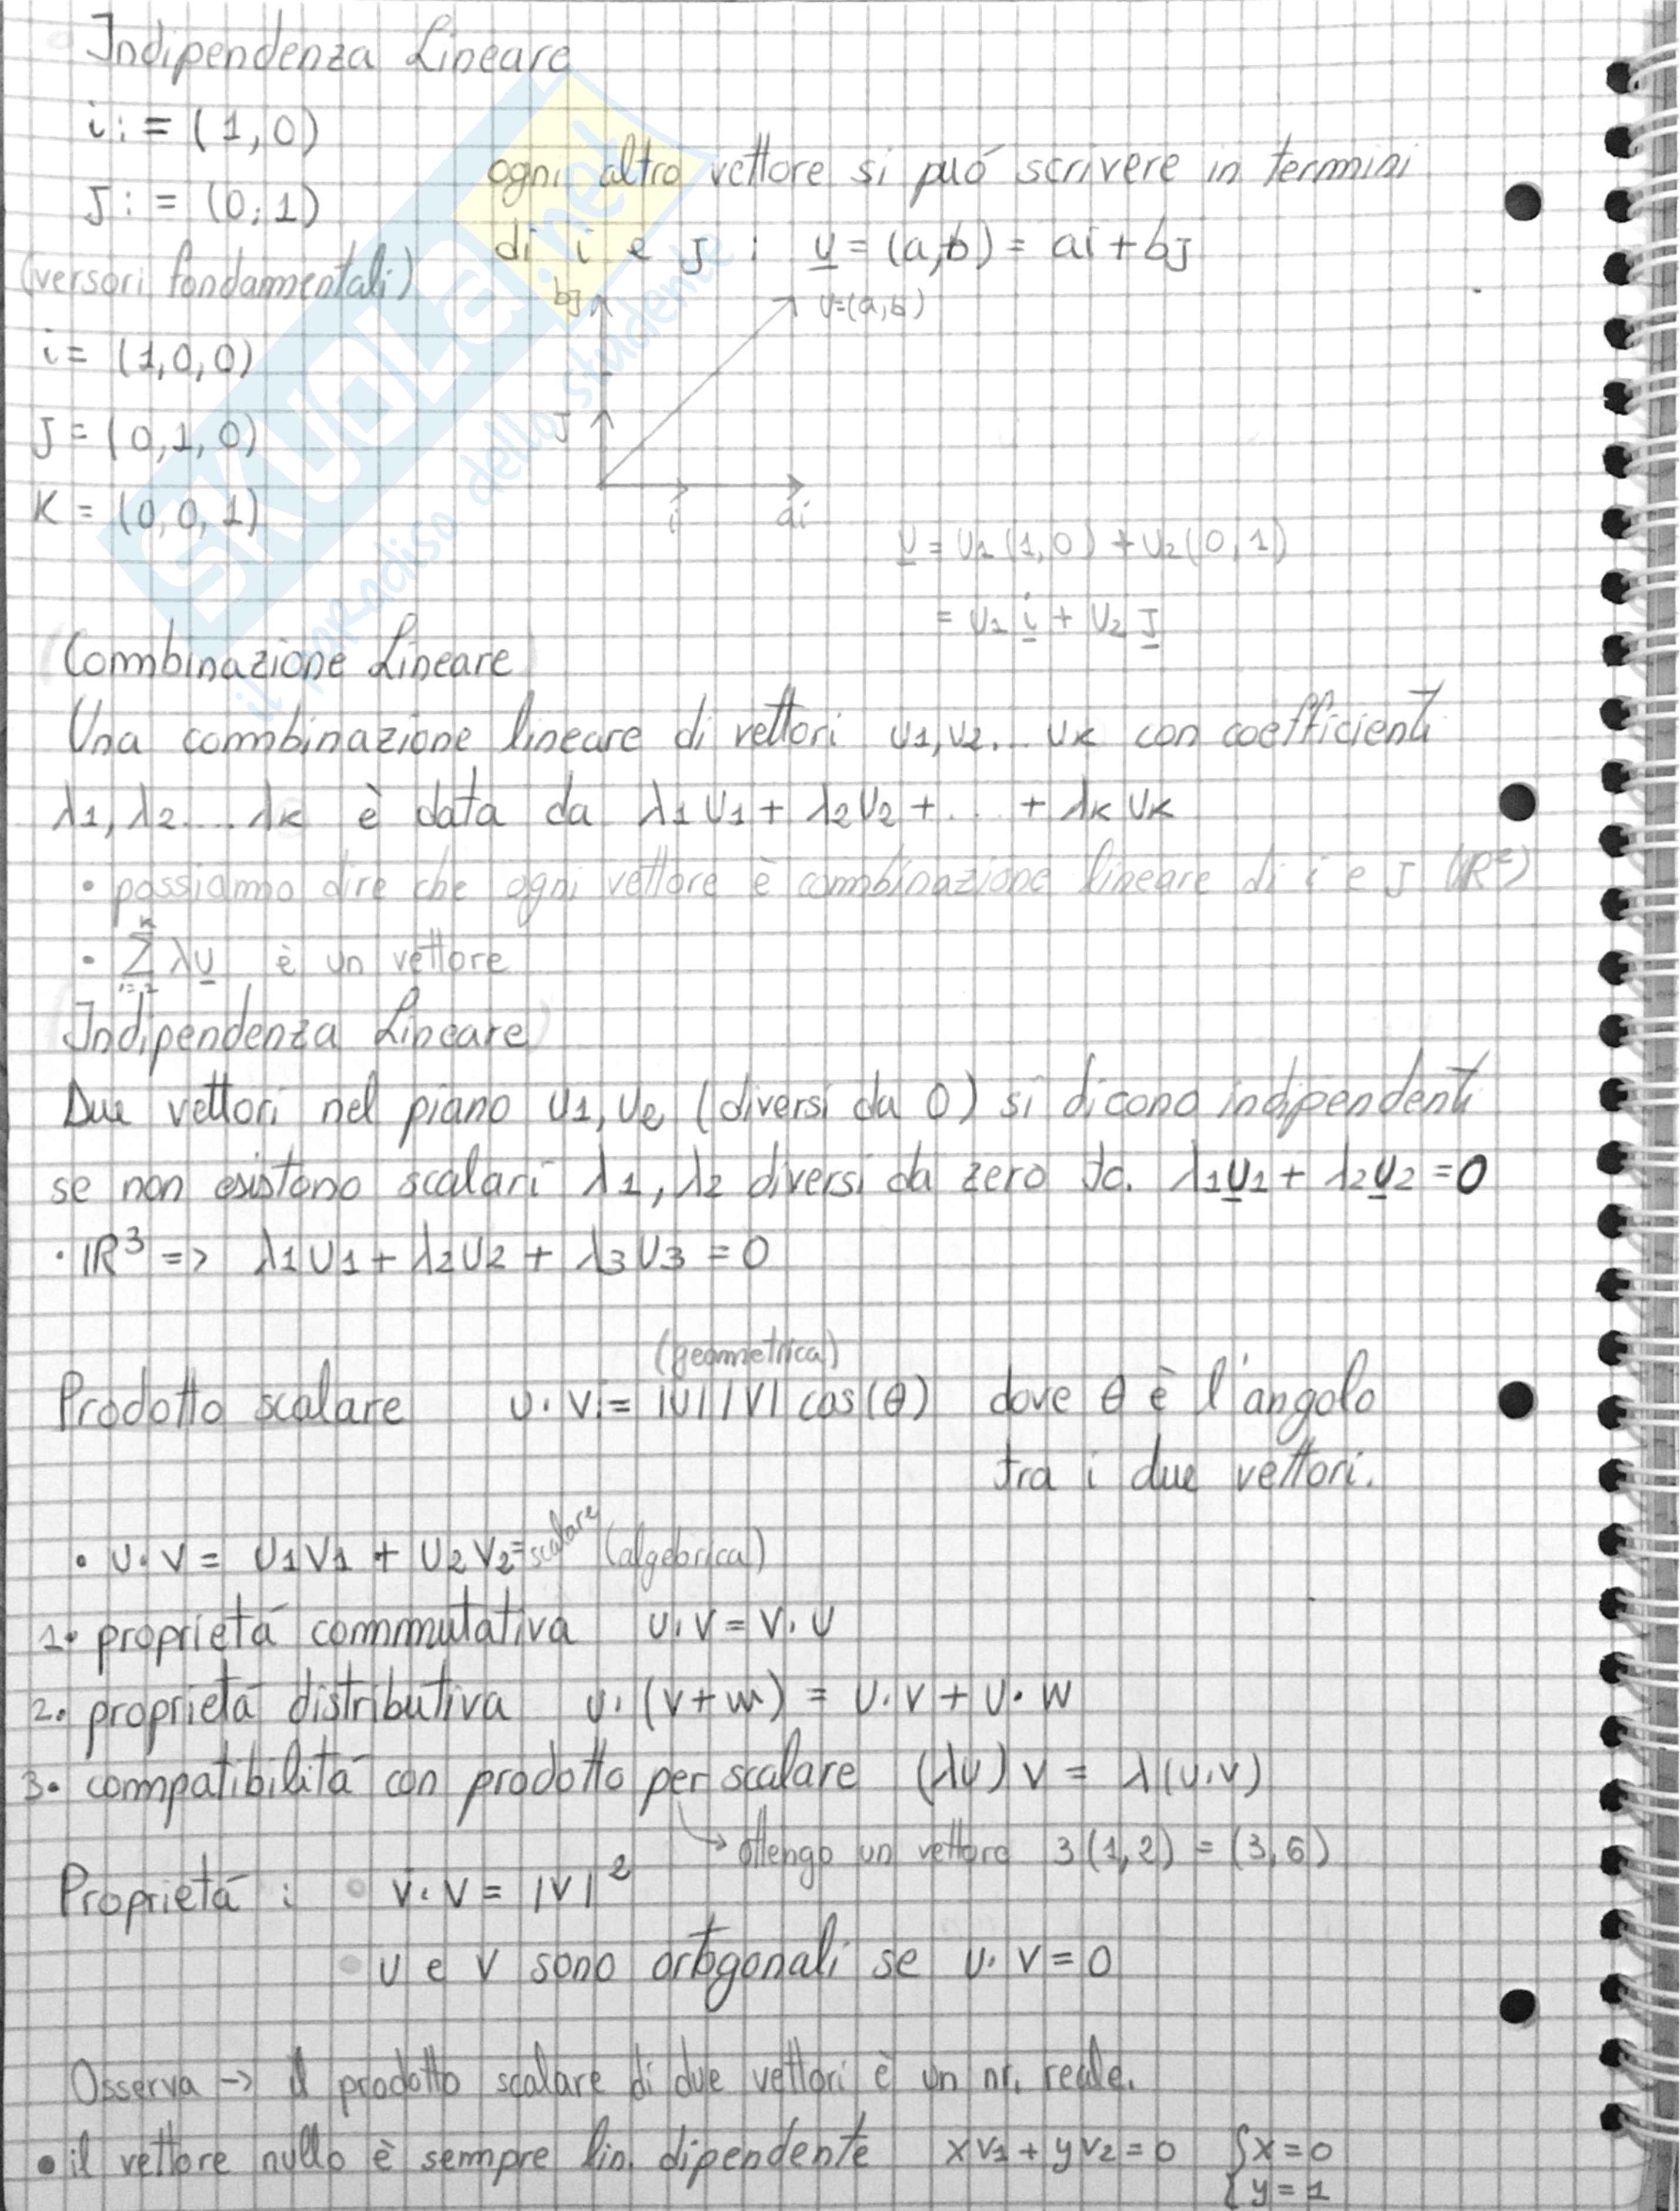 Indipendenza Lineare
i := (1,0)
J := (0;1)
(versori fondammentali)
ogni altro vettore si puó scrivere in termini
di i e J : u = (a,b) = ai + bJ
bJ
v=(a,b)
J
i
ai
i = (1,0,0)
J = (0,1,0)
K = (0,0,1)
u = u1 (1,0) + u2 (0,1)
= u1 i + u2 J
SKUOLA.net
il paradiso dello studente
(Combinazione Lineare)
Una combinazione lineare di vettori u1, u2... uk con coefficienti
λ1, λ2.... λk è data da λ1 u1 + λ2 u2 + ... + λk uk
• possiammo dire che ogni vettore è combinazione lineare di i e J (IR²)
• Σ λu è un vettore
(Indipendenza Lineare)
Due vettori nel piano u1, u2 (diversi da 0) si dicono indipendenti
se non esistono scalari λ1, λ2 diversi da zero tc. λ1u1 + λ2u2 = 0
• IR³ => λ1u1 + λ2u2 + λ3u3 = 0
(geometrica)
Prodotto scalare u · v := |u| |v| cos(θ) dove θ è l'angolo
tra i due vettori.
• u · v = u1v1 + u2v2 = scalare (algebrica)
1• proprietá commutativa u · v = v · u
2• proprietá distributiva u · (v+w) = u · v + u · w
3• compatibilitá con prodotto per scalare (λu) v = λ(u·v)
→ ottengo un vettore 3(1,2) = (3,6)
Proprietá : • v · v = |v|²
• u e v sono ortogonali se u · v = 0
Osserva -> il prodotto scalare di due vettori è un nr. reale.
• il vettore nullo è sempre lin. dipendente xv1 + yv2 = 0 { x = 0
y = 1